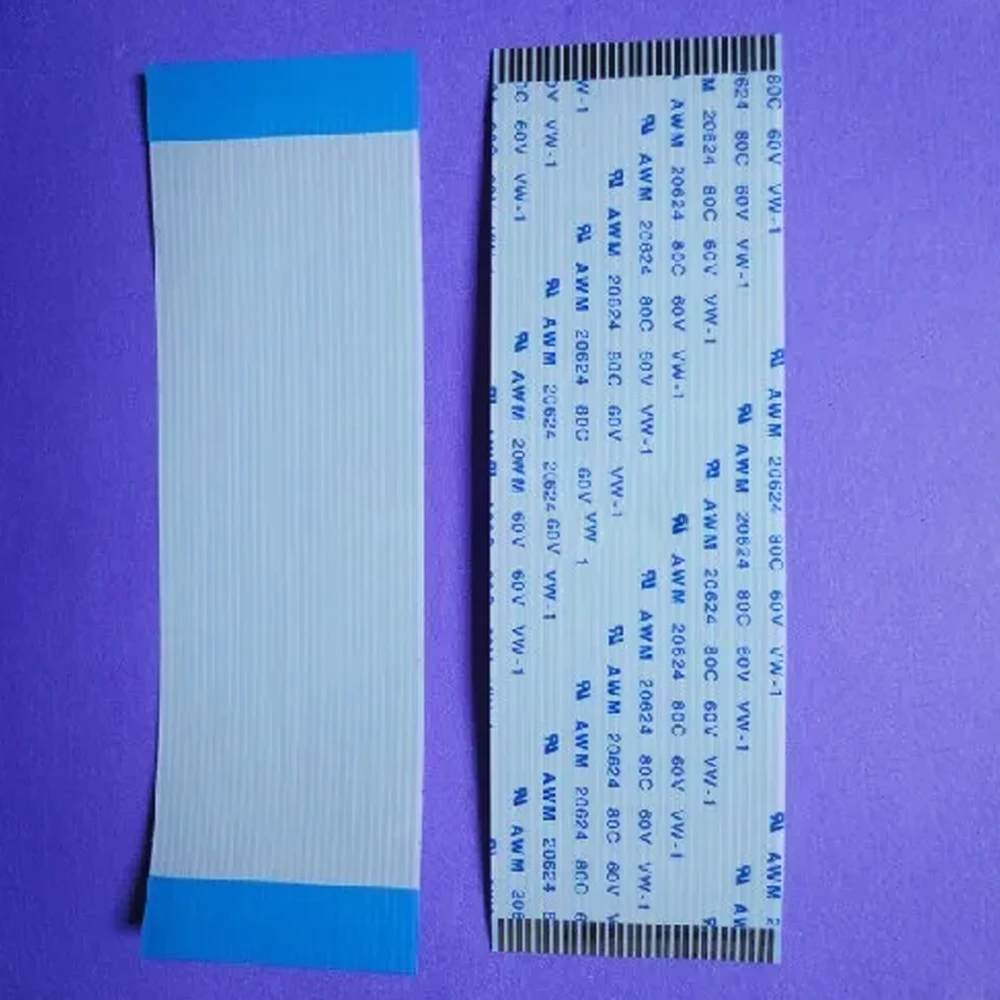 80C 60V VW-1 AWM 20624 80C 60V VW-1 AWM 2
624 80C 60V VW-1 AWM 20624 80C 60V VW-1 AW
M 20624 80C 60V VW-1 AWM 20624 80C 60V VW-1
AWM 20624 80C 60V VW-1 AWM 20624 80C 60V VW-1
AWM 20624 80C 60V VW-1 AWM 20624 80C 60V VW-1
AWM 20624 80C 60V VW-1 AWM 20624 80C 60V V
W-1 AWM 20624 80C 60V VW 1 AWM 20624 80C 6
0V VW-1 AWM 20624 20624 60V VW-1 AWM 20624
0C 60V VW-1 AWM 20WM 60V 60V VW-1 AWM 206